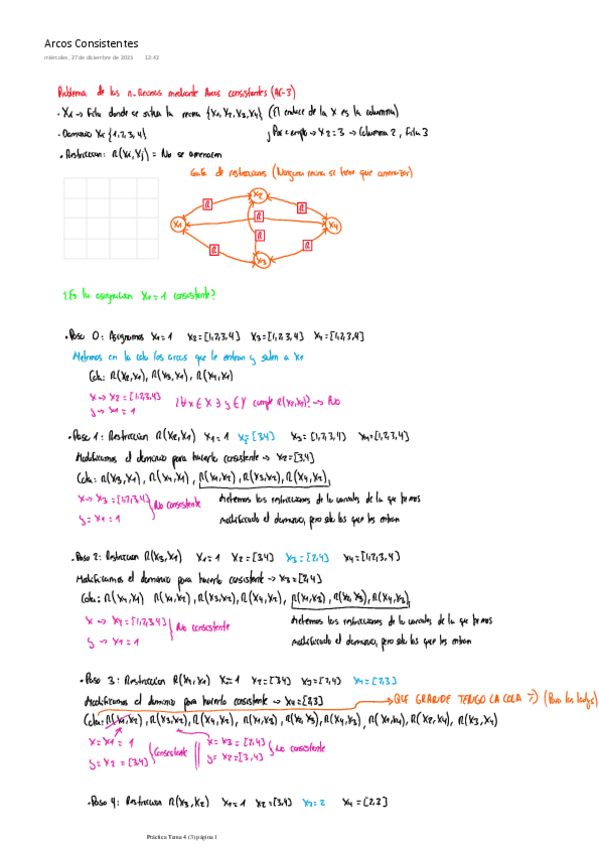 Arcos Consistentes
miércoles, 27 de diciembre de 2023 12:42
Problema de las n-Reinas mediante Arcos consistentes (AC-3)
· Xi → Fila donde se situa la reina {X1, X2, X3, X4} (El indice de la X es la columna)
· Dominio Xi {1, 2, 3, 4} Por ejemplo → X2 = 3 → Columna 2, Fila 3
· Restriccion: R(Xi, Xj) = No se amenacen
Grafo de restricciones (Ninguna reina se tiene que amenazar)
X2
R R
X1 R X4
R
R R
X3
¿Es la asignacion X1 = 1 consistente?
· Paso 0: Asignamos X1 = 1 X2 = [1,2,3,4] X3 = [1,2,3,4] X4 = [1,2,3,4]
Metemos en la cola los arcos que le entran y salen a X1
Cola: R(X2,X1), R(X3,X1), R(X4,X1)
X → X2 = [1,2,3,4]
y → X1 = 1
¿∀x ∈ X ∃ y ∈ Y cumple R(X2,X1)? → No
· Paso 1: Restriccion R(X2,X1) X1 = 1 X2 = [3,4] X3 = [1,2,3,4] X4 = [1,2,3,4]
Modificamos el dominio para hacerlo consistente → X2 = [3,4]
Cola: R(X3,X1), R(X4,X1), R(X1,X2), R(X3,X2), R(X4,X2)
X → X3 = [1,2,3,4]
y = X1 = 1
No consistente
Metemos las restricciones de la variable de la que hemos
modificado el dominio, pero solo las que les entran
· Paso 2: Restriccion R(X3,X1) X1 = 1 X2 = [3,4] X3 = [2,4] X4 = [1,2,3,4]
Modificamos el dominio para hacerlo consistente → X3 = [2,4]
Cola: R(X4,X1) R(X1,X2), R(X3,X2), R(X4,X2), R(X1,X3), R(X2,X3), R(X4,X3)
X → X4 = [1,2,3,4]
y → X1 = 1
No consistente
Metemos las restricciones de la variable de la que hemos
modificado el dominio, pero solo las que les entran
· Paso 3: Restriccion R(X4,X1) X1 = 1 X2 = [3,4] X3 = [2,4] X4 = [2,3]
Modificamos el dominio para hacerlo consistente → X4 = [2,3] → QUE GRANDE TENGO LA COLA ;) (Para las ladys)
Cola: R(X1,X2), R(X3,X2), R(X4,X2), R(X1,X3), R(X2,X3), R(X4,X3), R(X1,X4), R(X2,X4), R(X3,X4)
X = X1 = 1
y = X2 = [3,4]
Consistente
X = X3 = [2,4]
y = X2 = [3,4]
No consistente
· Paso 4: Restriccion R(X3,X2) X1 = 1 X2 = [3,4] X3 = 2 X4 = [2,3]
Práctica Tema 4 (3) página 1